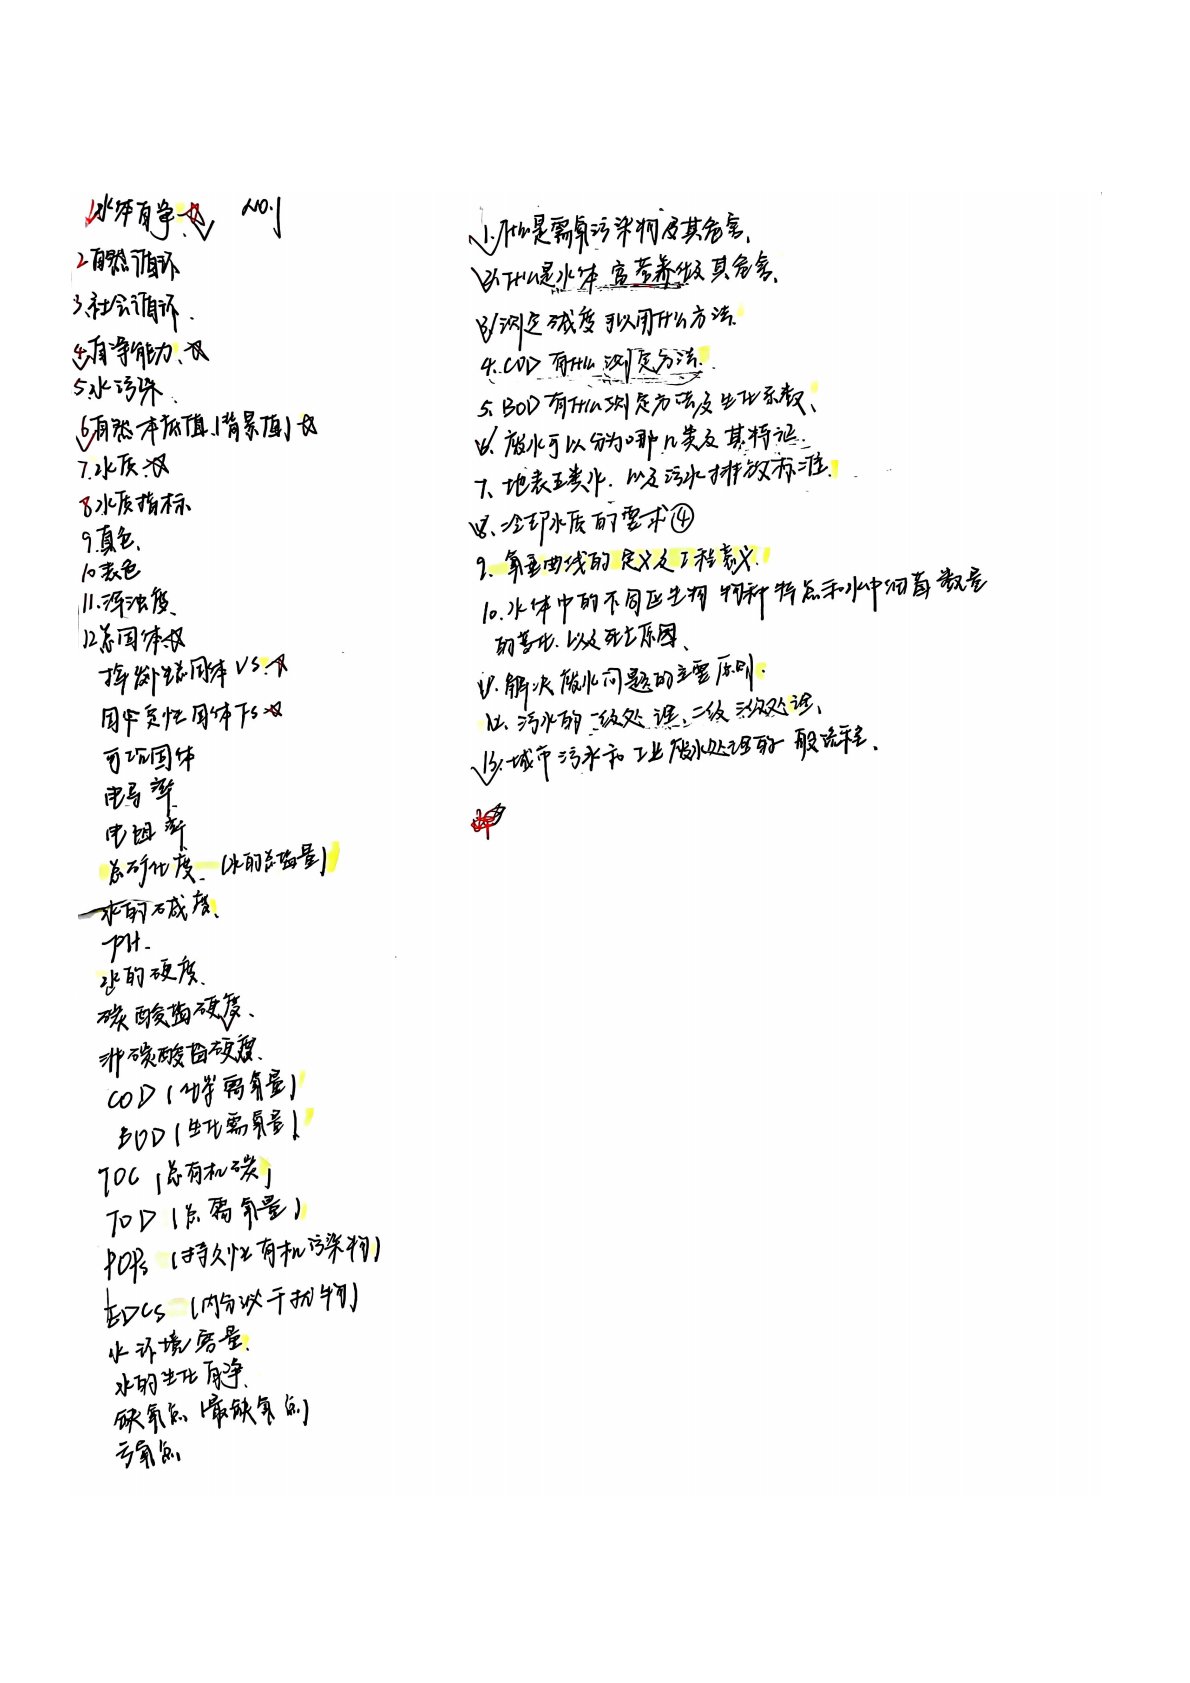 NO.1
1.水体自净
2.自然循环
3.社会循环.
4.自净能力.
5.水污染.
6.自然本底值.(背景值)
7.水质.
8.水质指标
9.真色.
10.表色
11.浑浊度.
12.总固体.
挥发性总固体VS.
固定性固体FS
可沉固体
电导率
电阻率
总矿化度.(水的总盐量)
水的碱度.
PH.
水的硬度.
碳酸盐硬度.
非碳酸盐硬度.
COD(化学需氧量)
BOD(生化需氧量)
TOC(总有机碳)
TOD(总需氧量)
POPs(持久性有机污染物)
EDCs(内分泌干扰物)
水环境容量.
水的生化自净.
缺氧点(最缺氧点)
亏氧点
1.什么是需氧污染物及其危害.
2.什么是水体富营养化及其危害.
3.测定碱度可以用什么方法.
4.COD有什么测定方法.
5.BOD有什么测定方法及生化系数.
6.废水可以分为哪几类及其特征.
7.地表五类水.以及污水排放标准.
8.冷却水质的要求④
9.氧垂曲线的定义及工程意义.
10.水体中的不同区生物物种特点和水中细菌数量
的变化.以及死亡原因.
11.解决废水问题的主要原则.
12.污水的一级处理、二级三级处理.
13.城市污水和工业废水处理的一般流程.